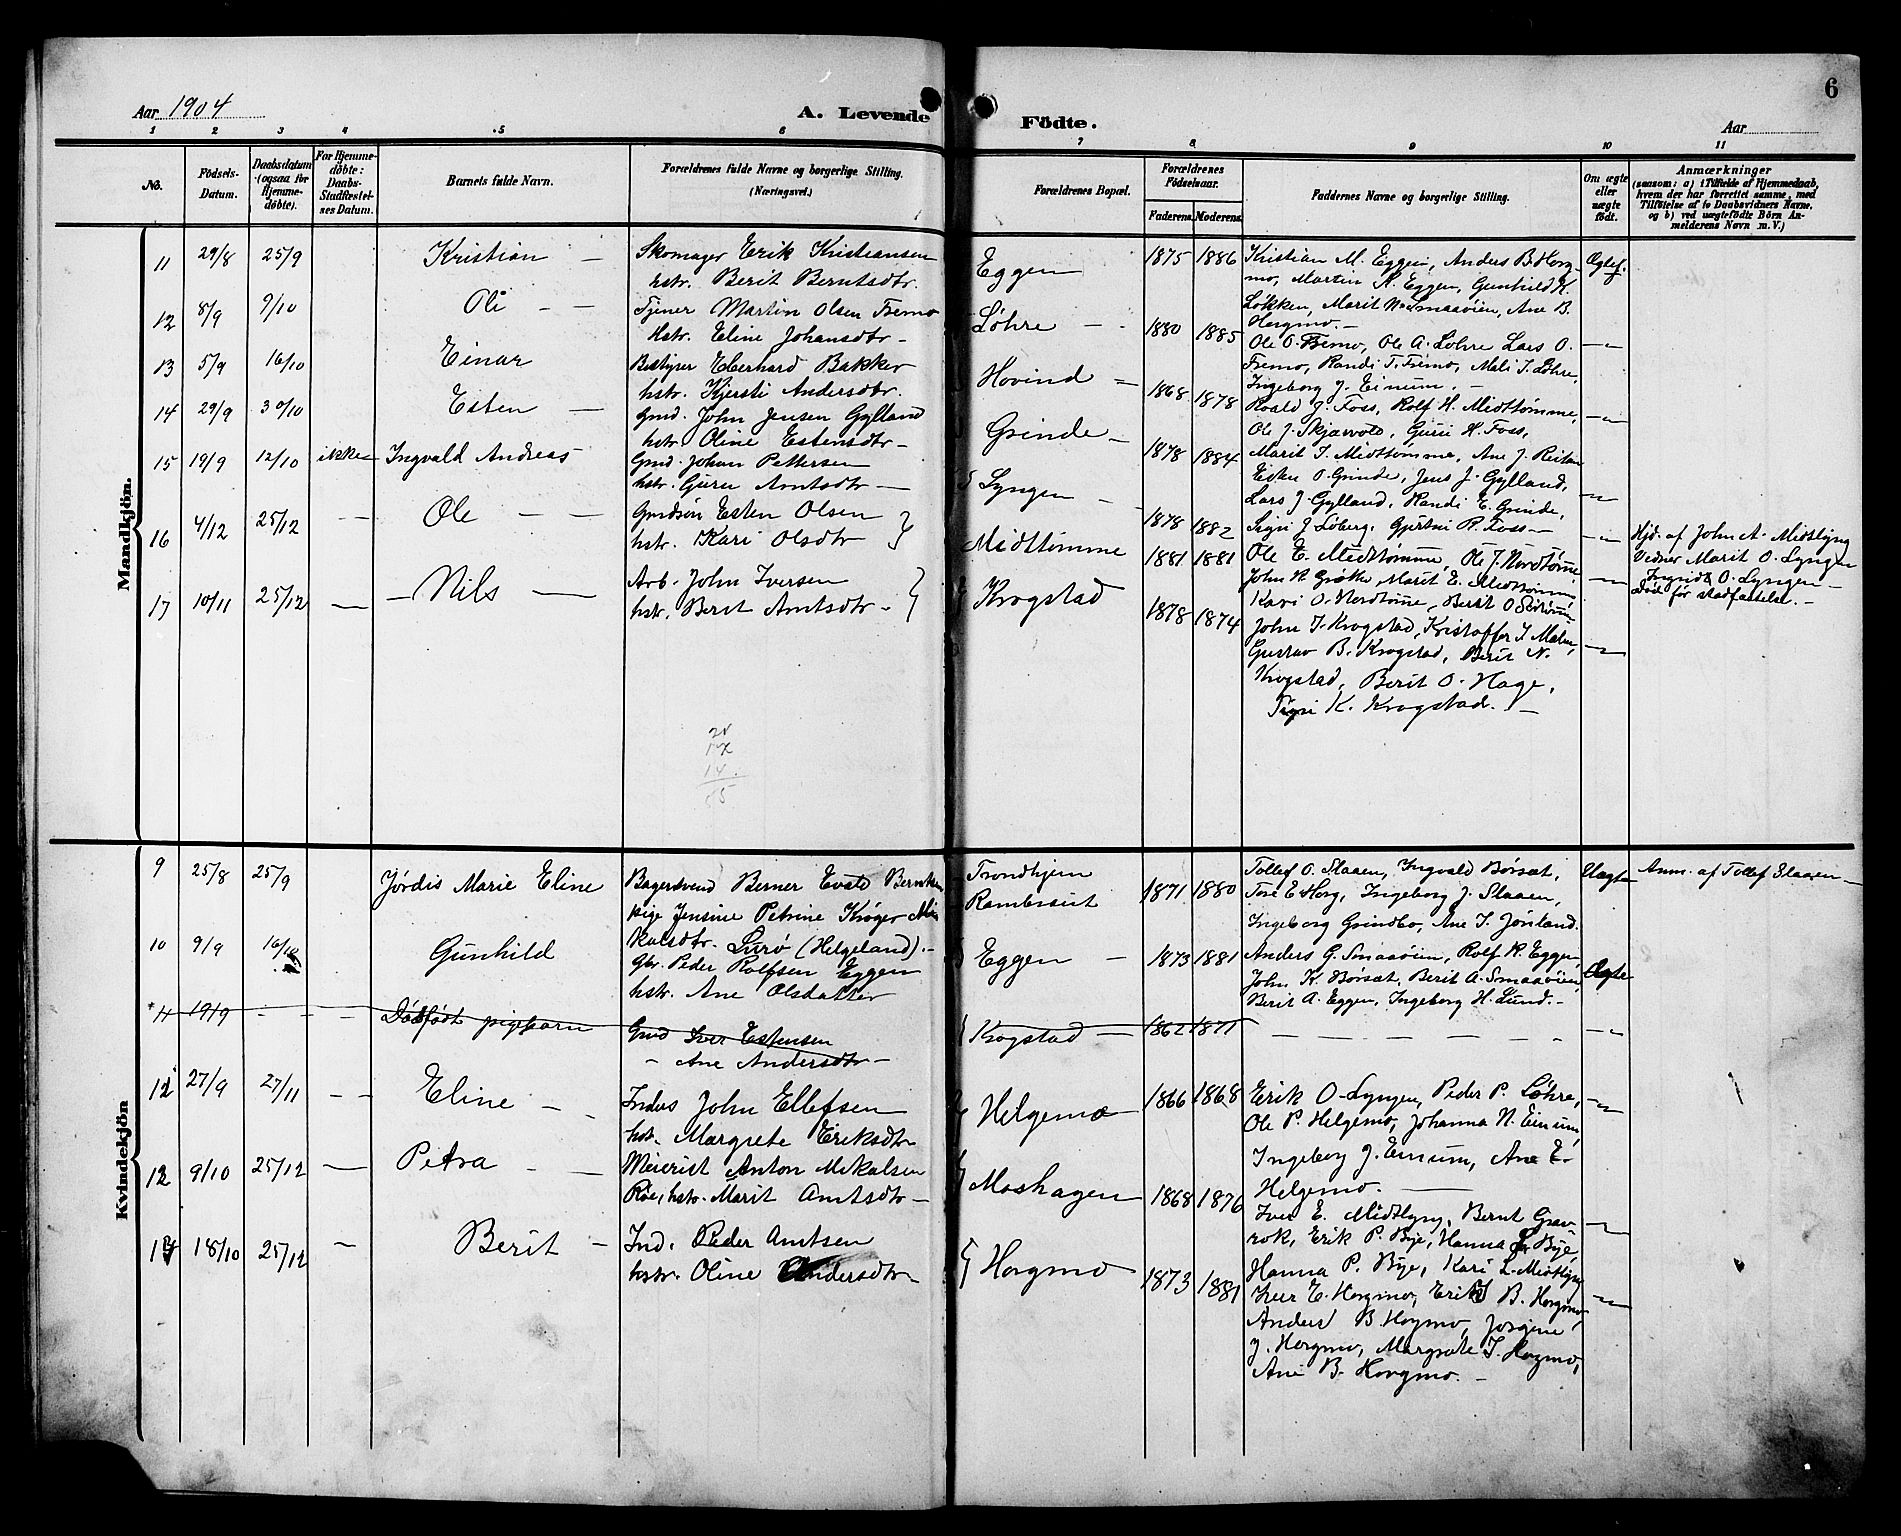 6
Aar 1904
A. Levende
Födte.
Aar
1 2 3 4 5 6 7 8 9 10 11
No.
Födsels-Datum.
Daabsdatum (ogsaa for Hjemme-döbte).
For Hjemme-döbte: Daabs-Stadfæstel-ses Datum.
Barnets fulde Navn.
Forældrenes fulde Navne og borgerlige Stilling.
(Næringsvei.)
Forældrenes Bopæl.
Forældrenes Födselsaar.
Faderens. Moderens.
Faddernes Navne og borgerlige Stilling.
Om ægte eller uægte födt.
Anmærkninger
(saasom: a) i Tilfælde af Hjemmedaab,
hvem der har forrettet samme, med
Tilföielse af to Daabsvidners Navne,
og b) ved uægtefödte Börn An-
melderens Navn m. V.)
Mandkjön.
11 29/8 25/9 Kristian — Skomager Erik Kristiansen
hstr. Berit Berntsdtr.
Eggen 1875 1886
Kristian M. Eggen, Anders B. Horg-
mo, Martin K. Eggen, Gunhild K.
Løkken, Marit N. Smaaöien, Ane B.
Horgmo. —
12 8/9 9/10 Oli — — Tjener Martin Olsen Fremo
Hstr. Eline Johansdtr —
Løhre — 1880 1885
Ole O. Fremo, Ole A. Løhre Lars O.
Fremo, Randi T. Fremo, Mali I. Løhre,
Ingeborg J. Einum. —
13 5/9 16/10 Einar Bestyrer Eberhard Bakker
hstr. Kjersti Andersdtr.
Hovind — 1868 1878
Roald J. Foss, Rolf H. Midttømme,
Ole J. Skjærvold, Guri H. Foss,
Marit I. Midttømme, Ane J. Reitan
14 29/9 30/10 Esten — Gmd. John Jensen Gylland
hstr. Oline Estensdtr —
Grinde — 1878 1884
Esten O. Grinde, Jens J. Gylland,
Lars J. Gylland, Randi E. Grinde,
Sigri J. Løberg, Gjertru R. Foss —
15 19/9 12/10 ikke Ingvald Andreas Gmd. Johan Pettersen
hstr. Guru Arntsdtr —
Lyngen — 1878 1882
Hjd. af John A. Midtlyng
Vidner Marit O. Lyngen
Ingrid O. Lyngen —
Död før stadfæstelse. —
16 4/12 25/12 — Ole — — Gmdsön Esten Olsen
hstr. Kari Olsdtr
Midttømme 1881 1881
Ole E. Midttømme, Ole J. Nordtømme
Kari O. Nordtømme, Berit O.
17 10/11 25/12 — — Nils — Arb. John Iversen
hstr. Berit Arntsdtr —
Krogstad 1878 1874
John I. Krogstad, Kristoffer I.
Gustav B. Krogstad, Berit N.
Krogstad, Berit O. Hage,
Sigri K. Krogstad. —
14
Kvindekjön
9 25/8 25/9 Jørdis Marie Eline Bagersvend Berner Evald Berntsen
pige Jensine Petrine Krøger
Lurø (Helgeland). —
Trondhjem
1871 1880
Tollef O. Slaaen, Ingvald Børsæt,
Tore E. Horg, Ingeborg J. Slaaen,
Ingeborg Grindbo, Ane I. Jønland.
Uægte Anm. af Tollef Slaaen —
10 9/9 Gunhild Gbr. Peder Rolfsen Eggen
hstr. Ane Olsdatter
Eggen — 1873 1881
Anders G. Smaaöien, Rolf R. Eggen,
John K. Børsæt, Berit A. Smaaöien,
Berit A. Eggen, Ingeborg H. Lund. —
Ægte
11 19/9 — — Dødfødt pigebarn Gmd Iver Estensen
— Ane Andersdtr —
Krogstad — 1862 1871 — — — — —
12 27/9 27/11 — Eline — Inders John Ellefsen
hstr. Margrete Eriksdtr
Helgemo 1866 1868
Erik O. Lyngen, Peder P. Løhre,
Ole P. Helgemo, Johanna N. Einum,
Ingeborg J. Einum, Ane E.
Helgemo. —
12 9/10 25/12 — Petra — Meierist Anton Mikalsen
Röe, hstr. Marit Arntsdtr —
Moshagen 1868 1876
Iver E. Midtlyng, Bernt Grav-
rok, Erik P. Bye, Hanna Bye,
Hanna P. Bye, Kari L. Midtlyng
18/10 25/12 — Berit — Ind. Peder Arntsen
hstr. Oline Andersdtr —
Horgmo 1873 1881
Iver E. Horgmo, Erik B. Horgmo,
Anders B. Horgmo, Jørgine
J. Horgmo, Margrete I. Horgmo,
Ane B. Horgmo. —